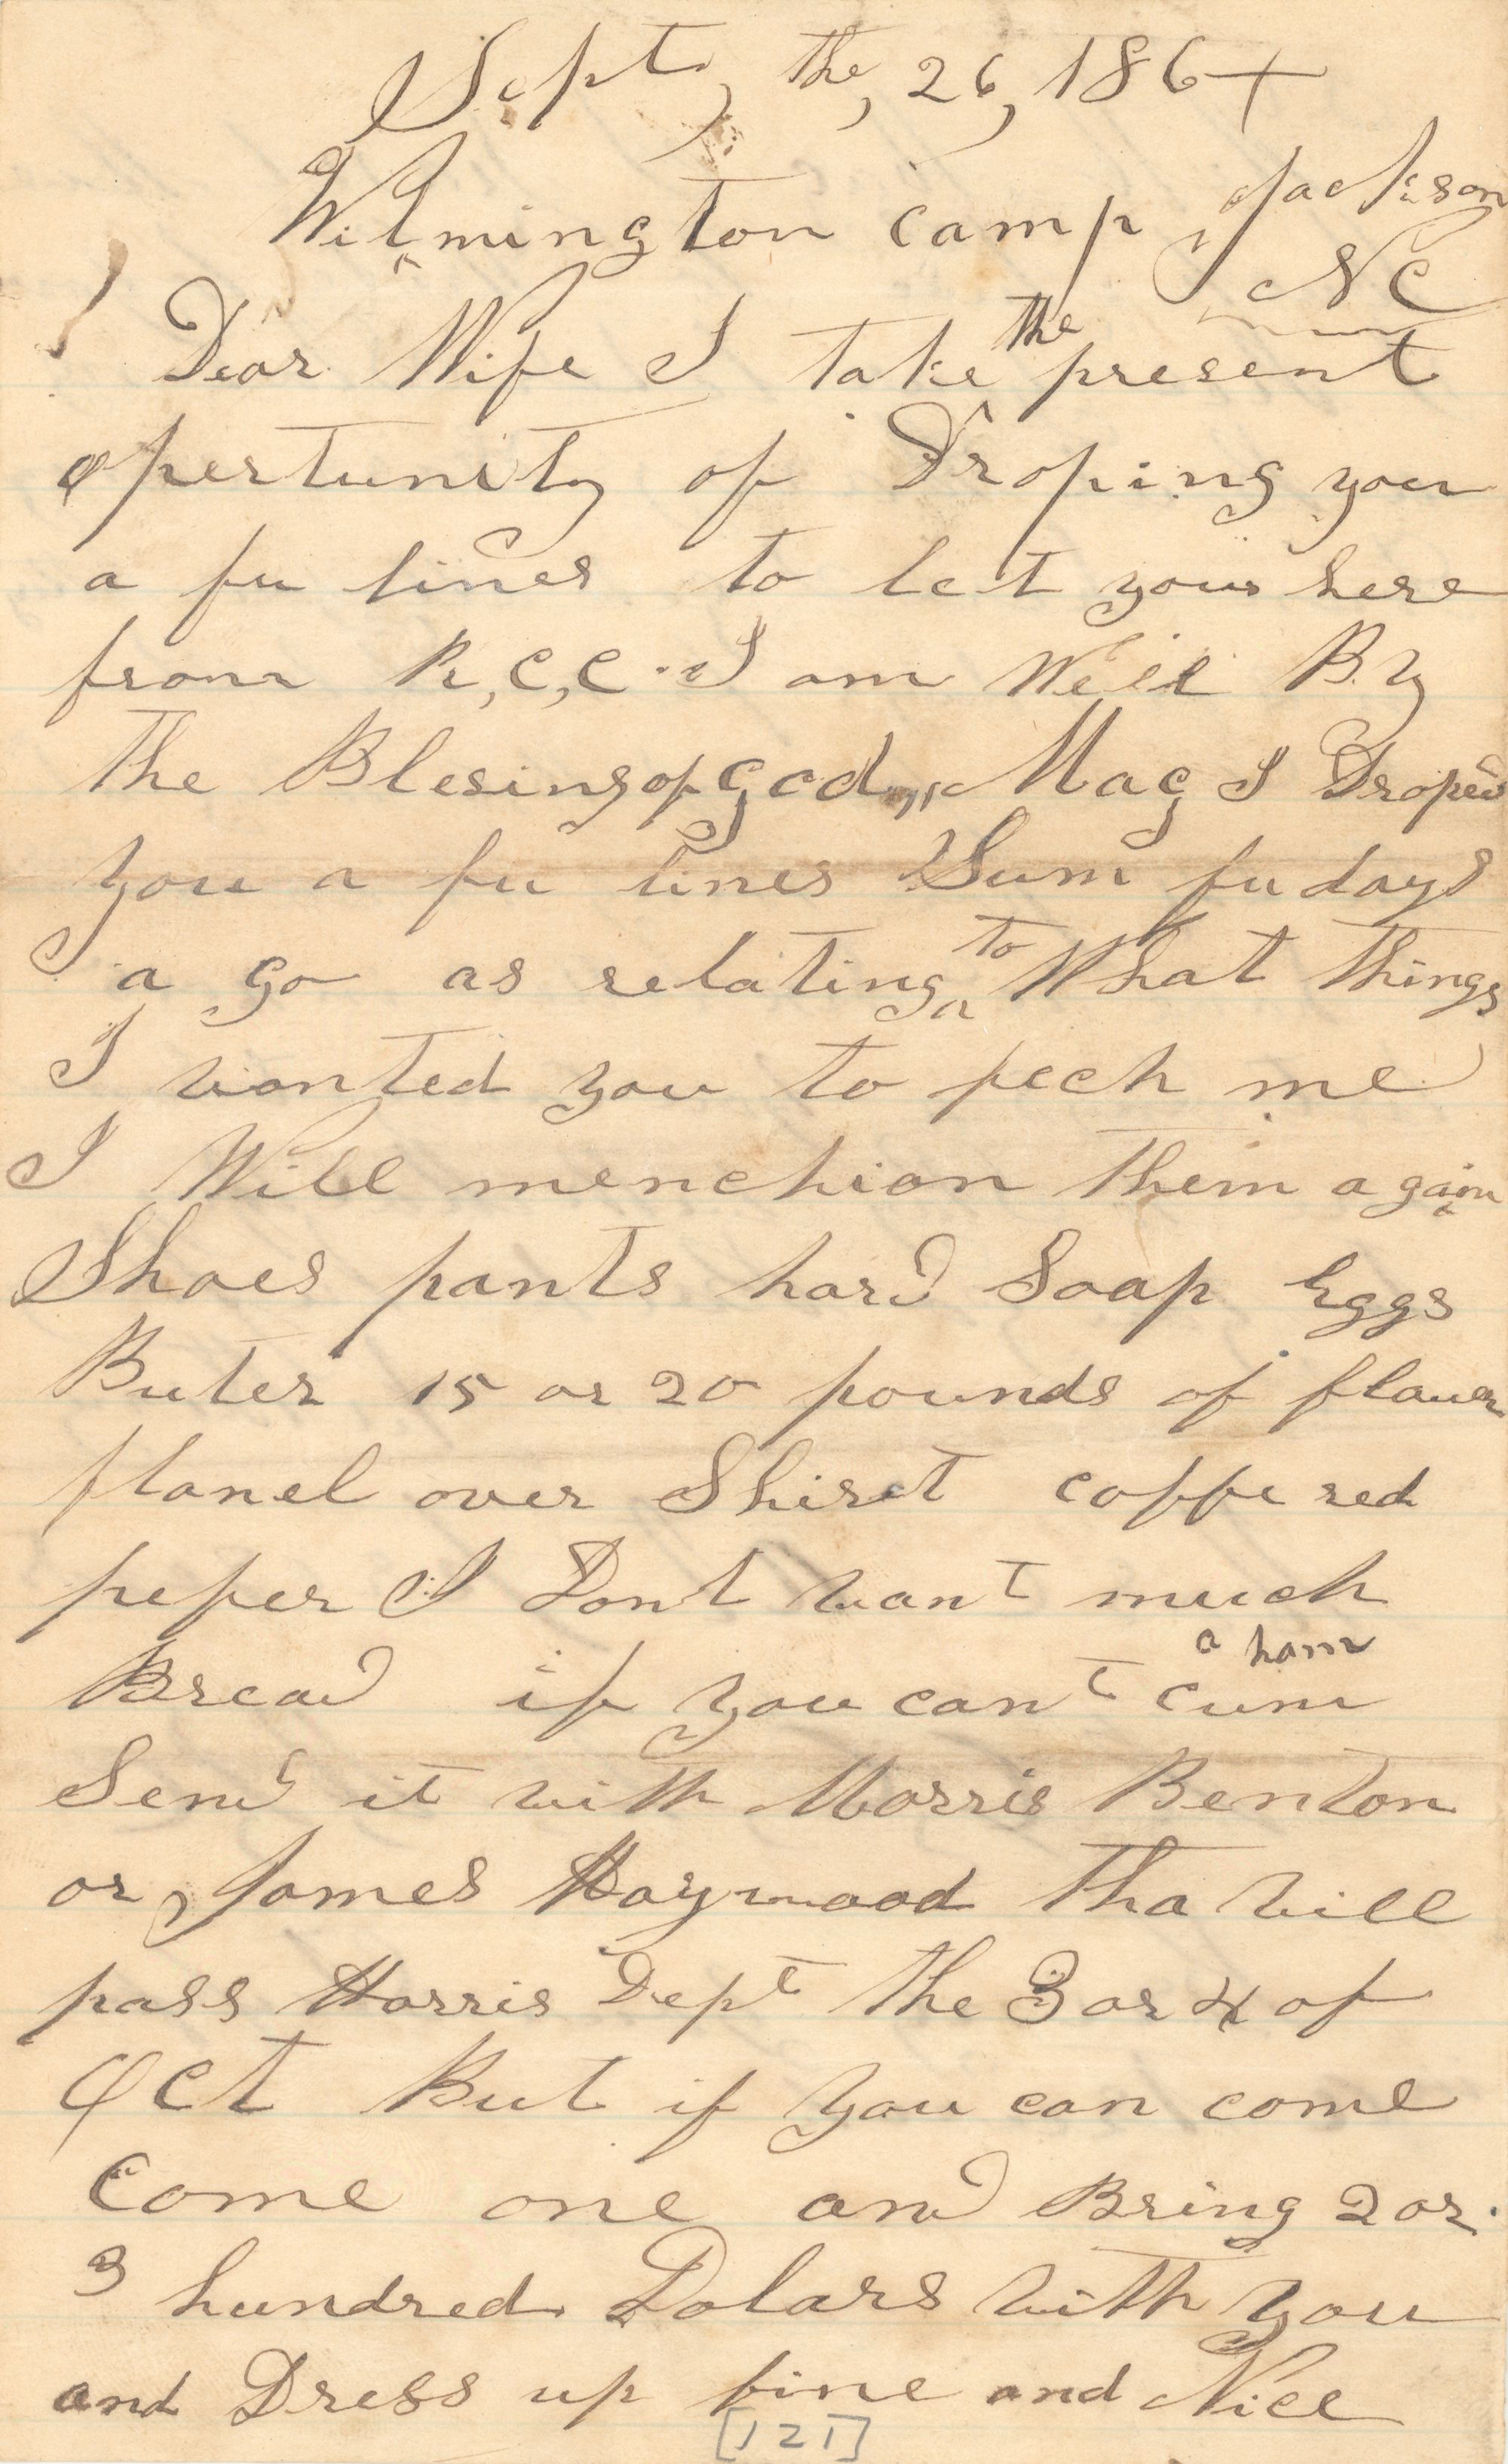 Sept, the, 26, 1864
Wilmington camp Jackson
NC
Dear Wife I take the present
opertunity of Droping you
a fu lines to let you here
from R,C,C. I am Well By
the Blesing of God,,, Mag I Droped
you a fu lines Sum fu days
a go as relating to What things
I wanted you to fech me
I Will menchion them again
Shoes pants hard Soap Eggs
Buter 15 or 20 pounds of flour
flanel over Shirt coffe red
peper I Dont want much
Bread if you cant cum a ham
Send it with Morris Benton
or James Haywood tha will
pass Harris Dept the 3 or 4 of
Oct But if you can come
Come one and Bring 2 or
3 hundred Dolars with you
and Dress up fine and Nice
[121]